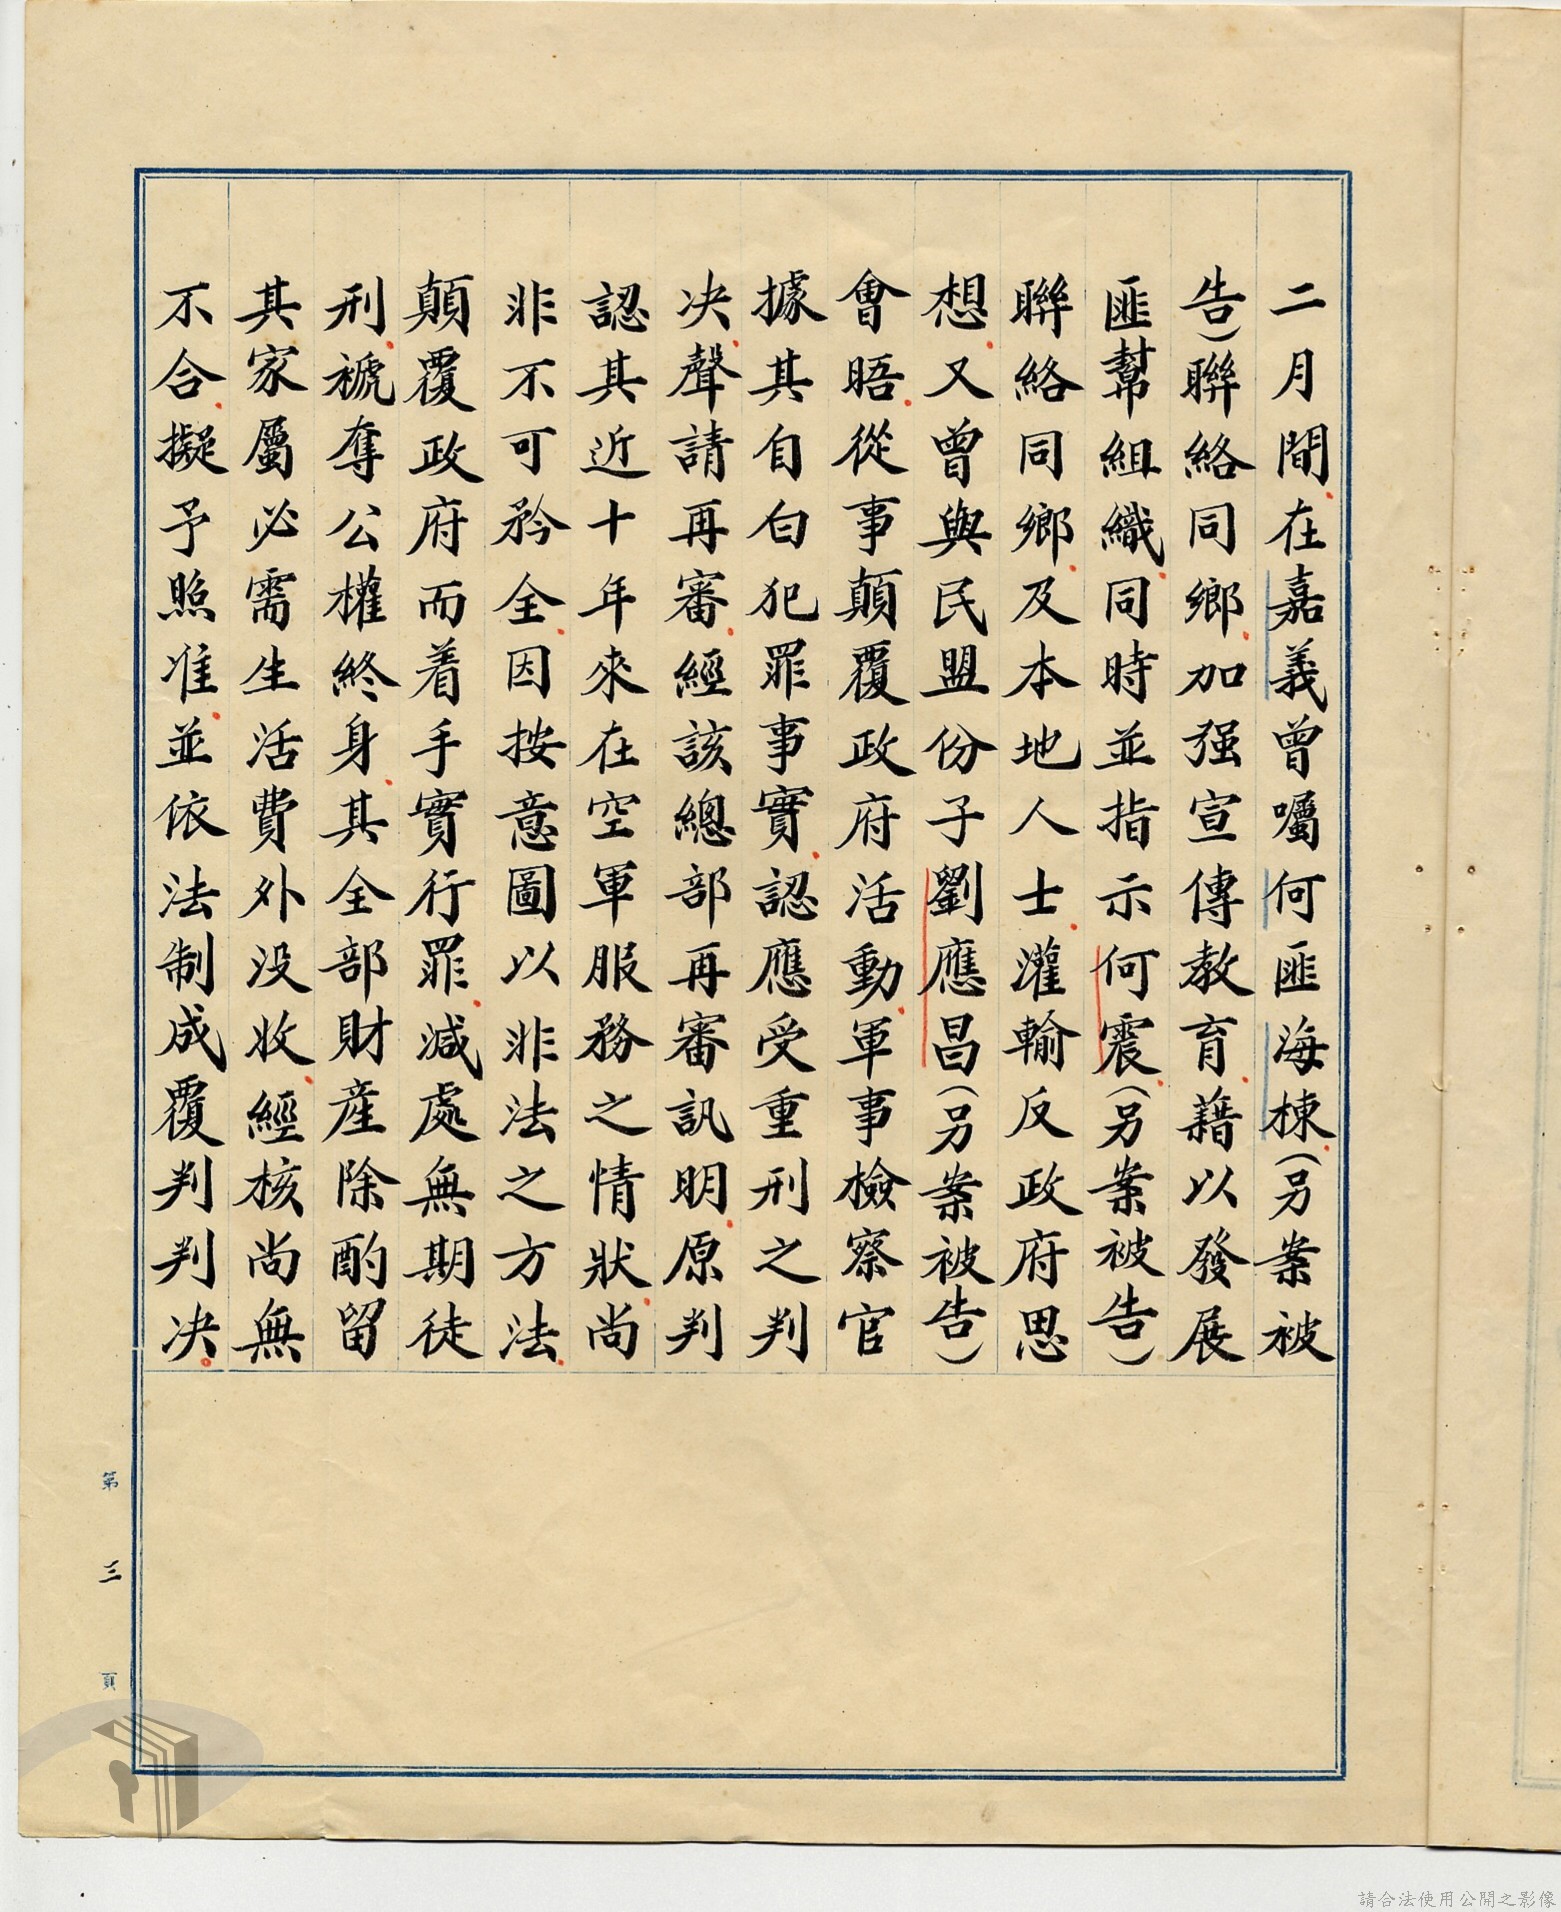 二月間在嘉義曾囑何匪海棟(另案被
告)聯絡同鄉加强宣傳教育藉以發展
匪幫組織同時並指示何震(另案被告)
聯絡同鄉及本地人士灌輸反政府思
想又曾與民盟份子劉應昌(另案被告)
會晤從事顛覆政府活動軍事檢察官
據其自白犯罪事實認應受重刑之判
决聲請再審經該總部再審訊明原判
認其近十年來在空軍服務之情狀尚
非不可矜全因按意圖以非法之方法
顛覆政府而着手實行罪減處無期徒
刑褫奪公權終身其全部財產除酌留
其家屬必需生活費外没收經核尚無
不合擬予照准並依法制成覆判判决
第三頁
請合法使用公開之影像